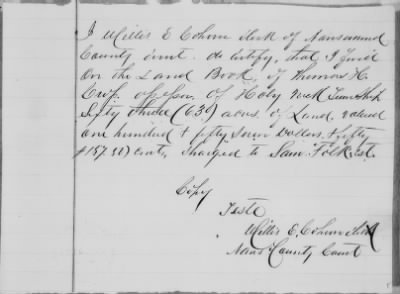 I Willis E Cohoon Clerk of Nansemond
County Court do Certify, that I find
On the Land Book, of Thomas H.
Crip, assessor, of Holy Neck Township
Sixty three (63) acres. of Land, valued
one hundred & fifty seven Dollars & fifty
$157.50) cents, charged to Sam. Folk est.
Copy
Teste
Willis E. Cohoon Clerk
Nans County Court